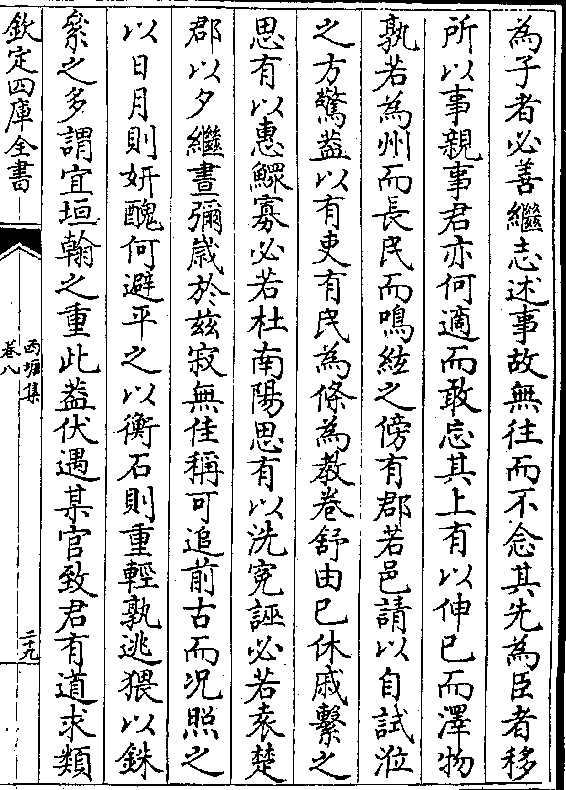 為子者必善繼志述事故無往而不念其先為臣者移
所以事親事君亦何適而敢忘其上有以伸已而澤物
孰若為州而長民而鳴絃之傍有郡若邑請以自試涖
之方驚蓋以有吏有民為條為教卷舒由已休戚繫之
思有以惠鰥寡必若杜南陽思有以洗寃誣必若袁楚
郡以夕繼晝彌歲於兹寂無佳稱可追前古而况照之
以日月則妍醜何避平之以衡石則重輕孰逃猥以銖
絫之多謂宜垣翰之重此蓋伏遇某官致君有道求類
欽定四庫全書
西塘集
卷八
二十九